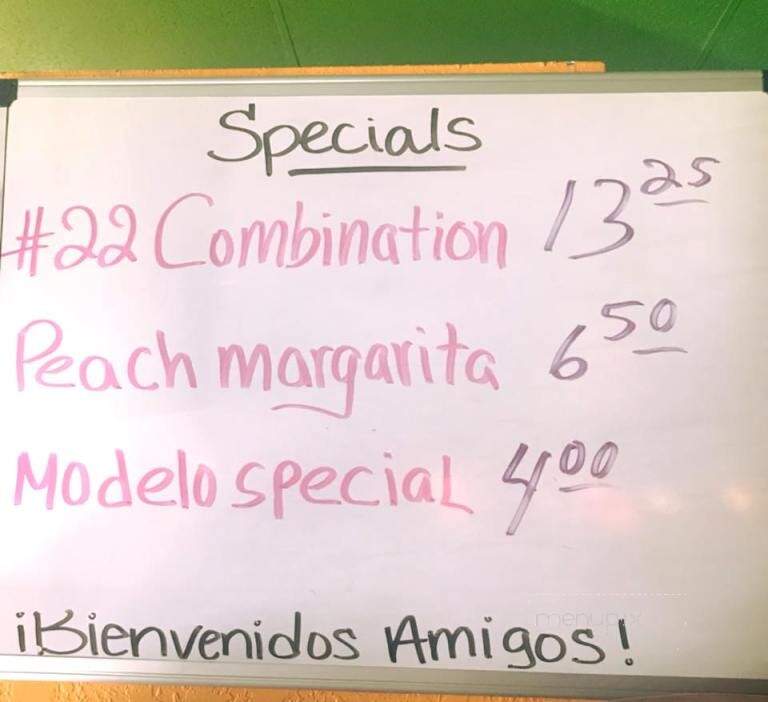 Specials
#22 Combination 13 25
Peach margarita 6 50
Modelo special 4 00
¡Bienvenidos Amigos!
menupix